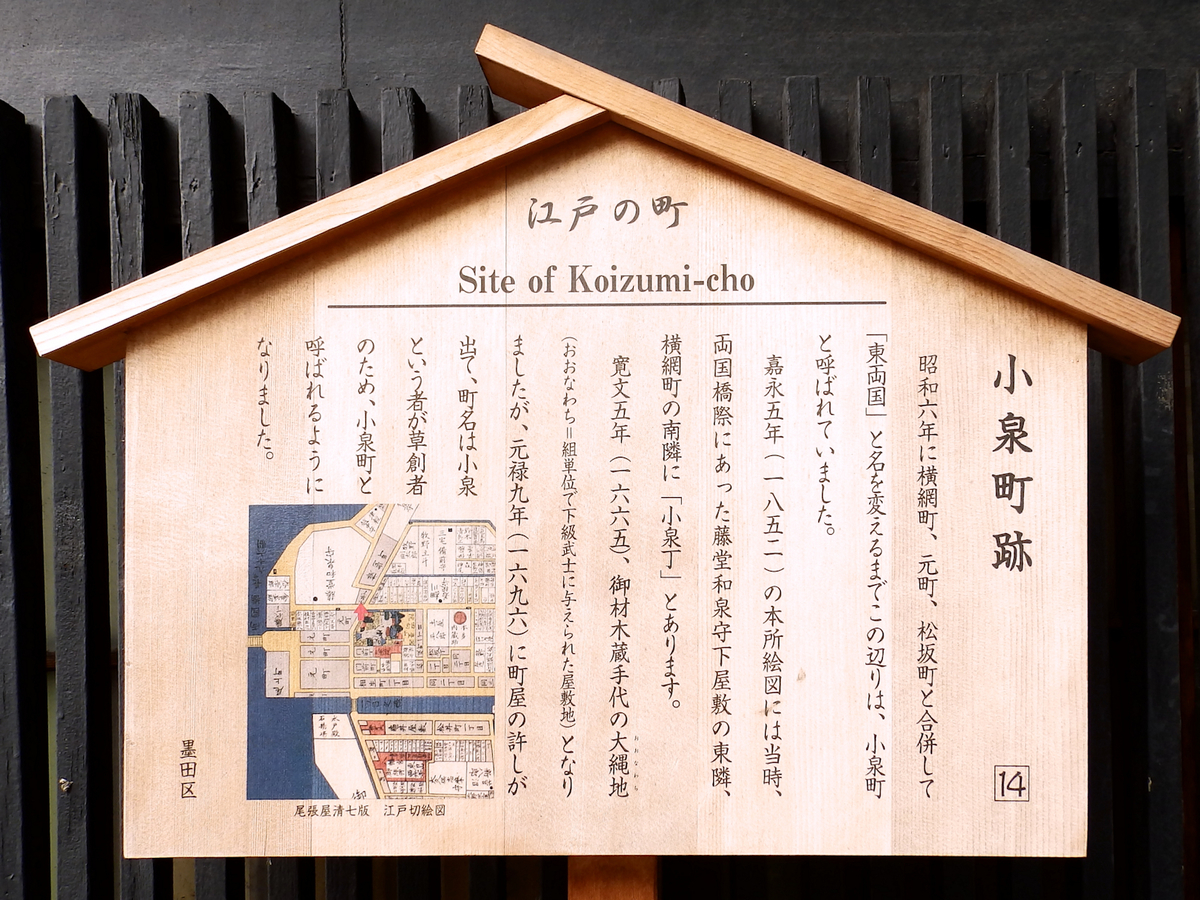 江戸の町
Site of Koizumi-cho
小泉町跡
14
昭和六年に横網町、元町、松坂町と合併して
「東両国」と名を変えるまでこの辺りは、小泉町
と呼ばれていました。
嘉永五年(一八五二)の本所絵図には当時、
両国橋際にあった藤堂和泉守下屋敷の東隣、
横網町の南隣に「小泉丁」とあります。
寛文五年(一六六五)、御材木蔵手代の大縄地
(おおなわち=組単位で下級武士に与えられた屋敷地)となり
ましたが、元禄九年(一六九六)に町屋の許しが
出て、町名は小泉
という者が草創者
のため、小泉町と
呼ばれるように
なりました。
尾張屋清七版 江戸切絵図
墨田区